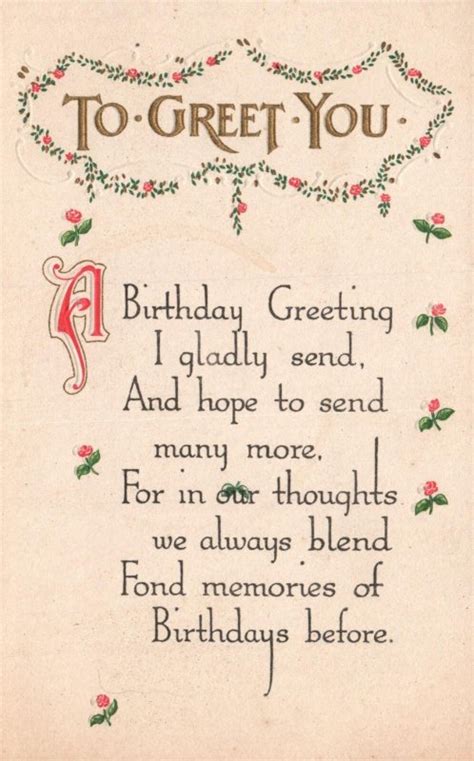 TO·GREET·YOU·
A Birthday Greeting
I gladly send,
And hope to send
many more,
For in our thoughts
we always blend
Fond memories of
Birthdays before.